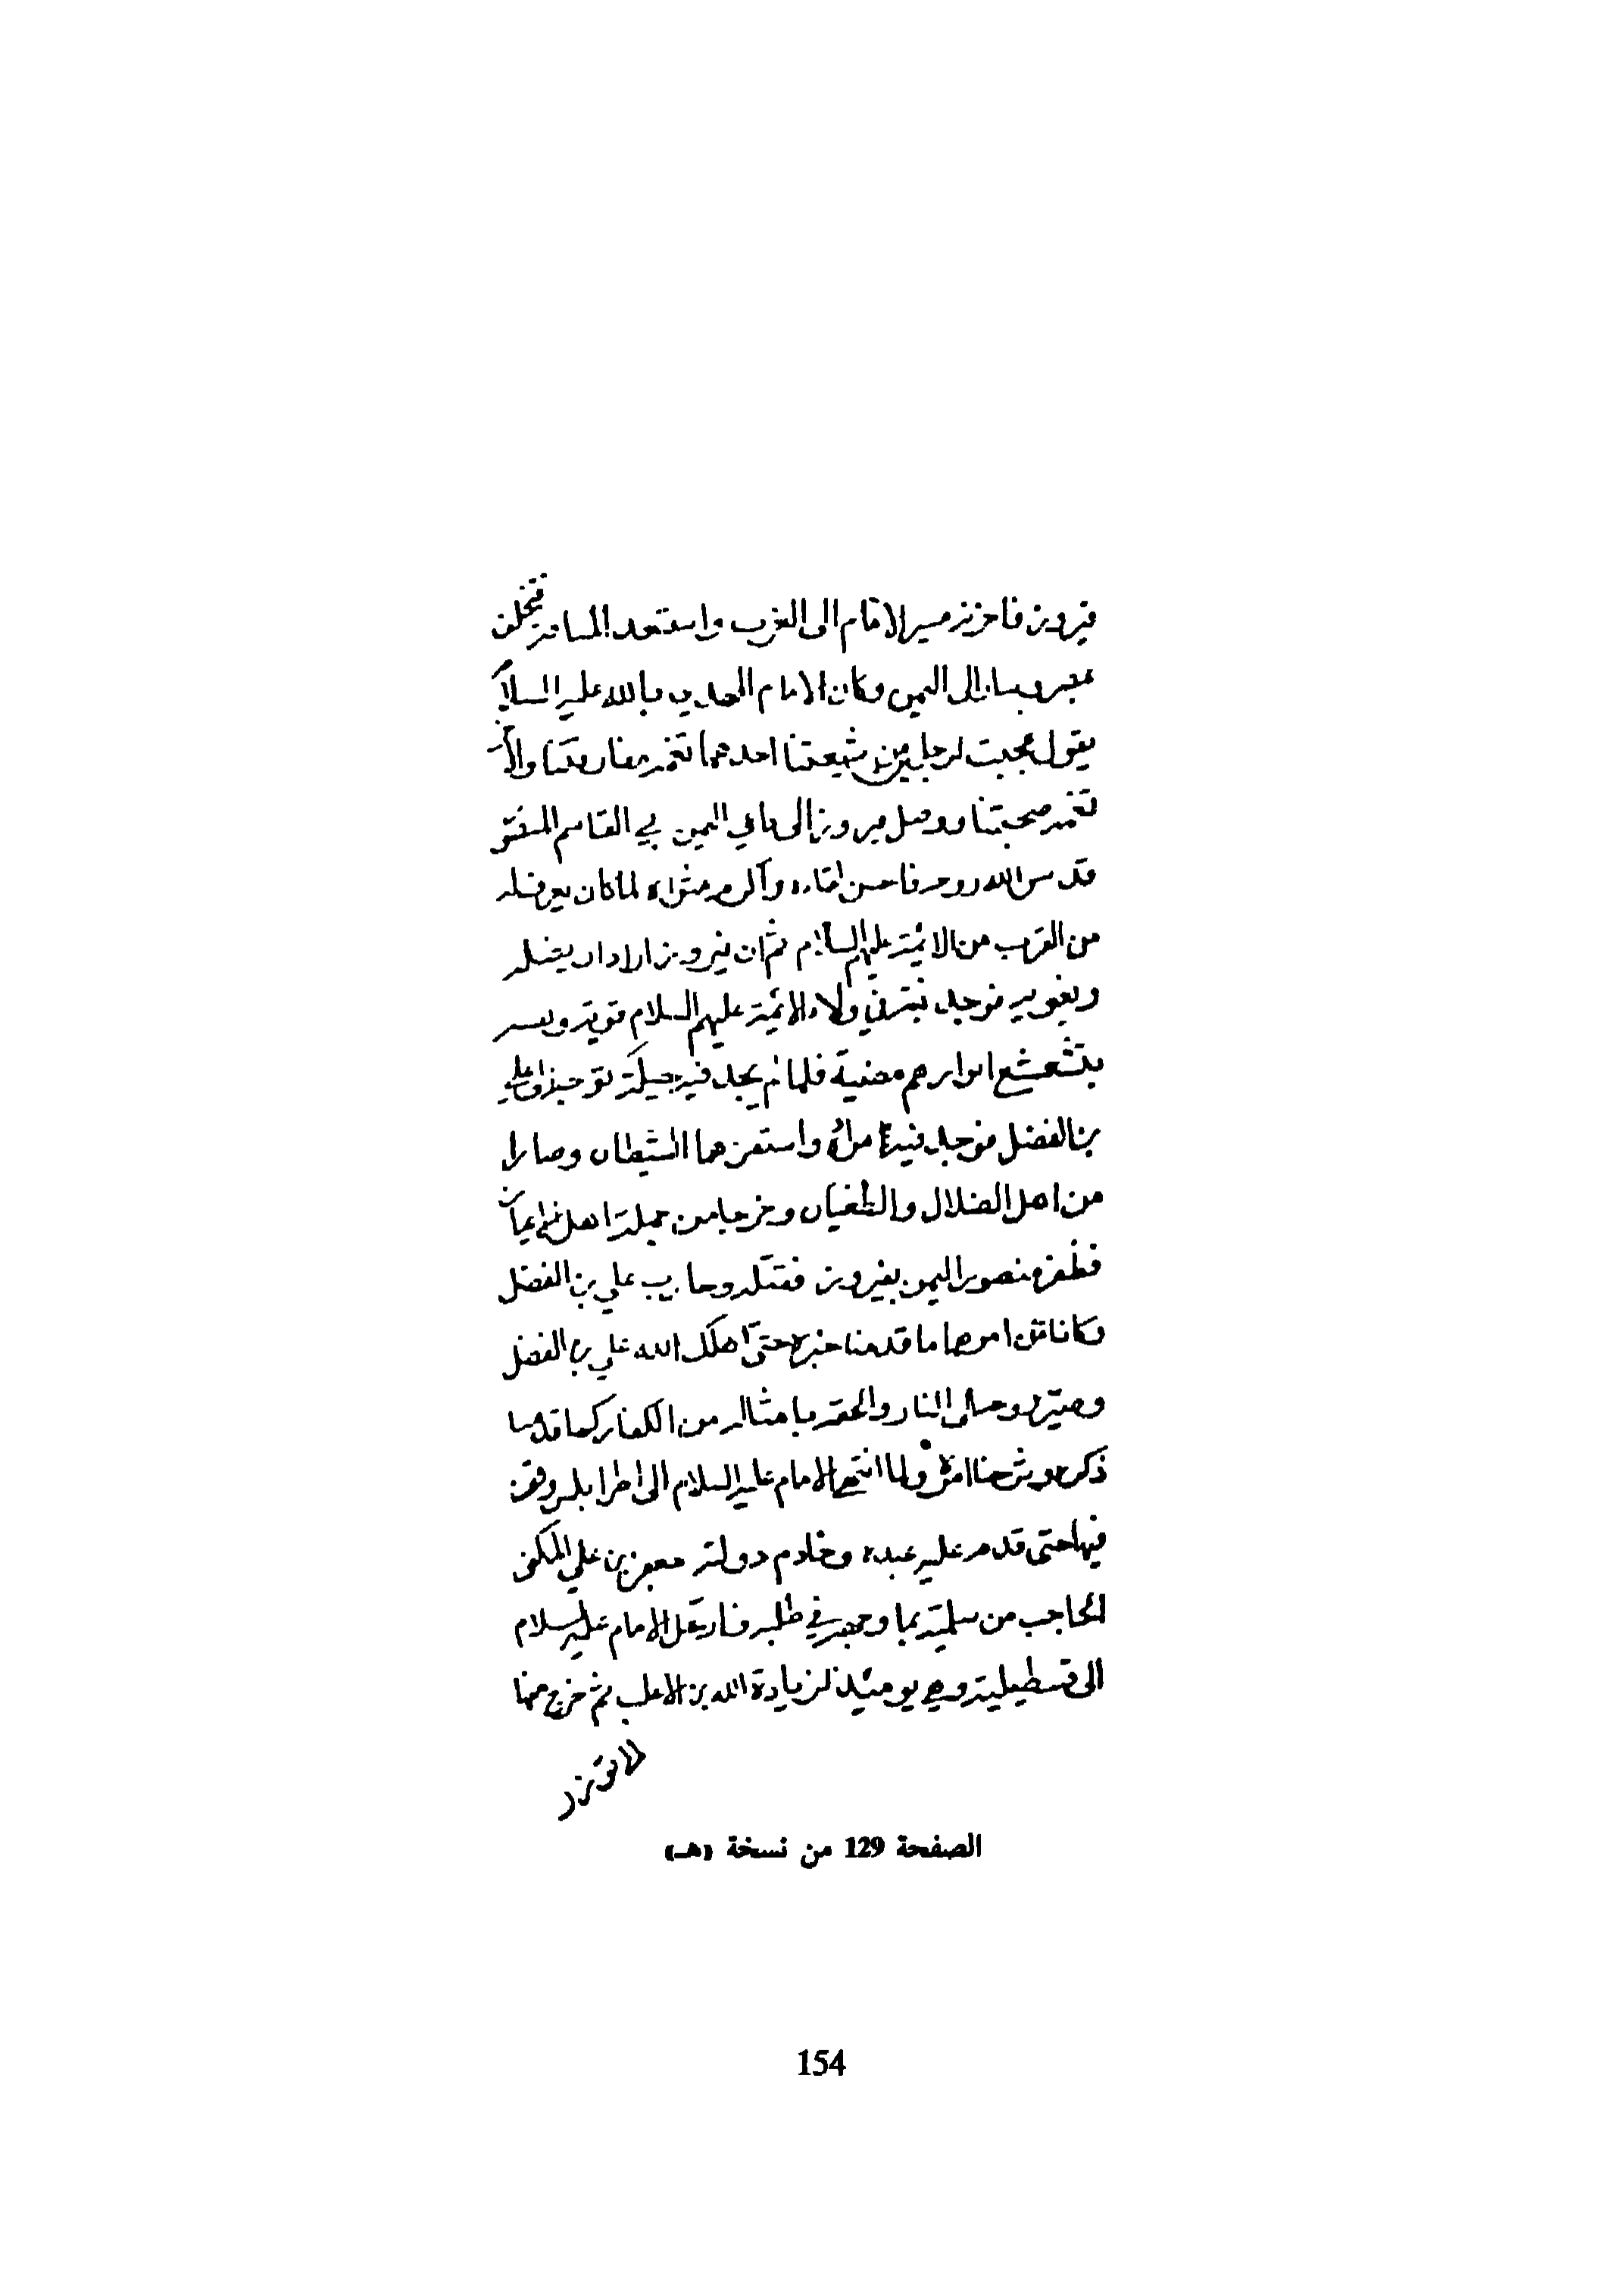 فيروز فاحزنه مسير الامام الى الغرب واستبعد المسافة فتخلف
بمصر وسار الى اليمن وكان الامام المهدي بالله عليه السلام
يقول عجبت لرجلين من شيعتنا احدهما تغمه مفارقتنا والآخر
تغمه صحبتنا ووصل فيروز الى داعي اليمن ابي القاسم المنصور
قدس الله روحه فاحسن لقاءه وأكرم مثواه لما كان يعرف له
من القرب من الائمة عليهم السلام ثم ان فيروز اراد ان يضله
ويغويه فوجد نيته في ولاء الائمة عليهم السلام قوية و
بتشعشع انوارهم مضيئة فلما لم يجد فيه حيلة توجه نحو علي
بن الفضل فوجد فيه ما امله واستفزهما الشيطان وصارا
من اهل الضلال والطغيان وخرجا من جملة اهل الايمان
فظفر منصور اليمن بفيروز فقتله وحارب علي بن الفضل
وكانا من امرهما ما قدمنا خبره حتى اهلك الله علي بن الفضل
وصير روحه الى النار والحقه بامثاله من الكفار كما قدمنا
ذكره وشرحنا امره ولما انتهى الامام عليه السلام الى اطرابلس وقف
فيها حتى قدم عليه عبده وخادم دولته جعفر بن علي المكنى
الحاجب من سلمية بما وجهه في طلبه فارتحل الامام عليه السلام
الى قسطيلية وهي يومئذ لزيادة الله بن الاغلب ثم خرج منها
الصفحة 129 من نسخة (هـ)
154